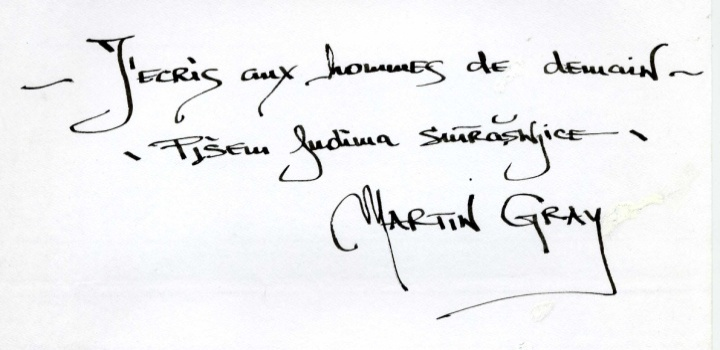 ~ J'ecris aux hommes de demain ~
Pišem ljudima sutrašnjice
MARTIN GRAY